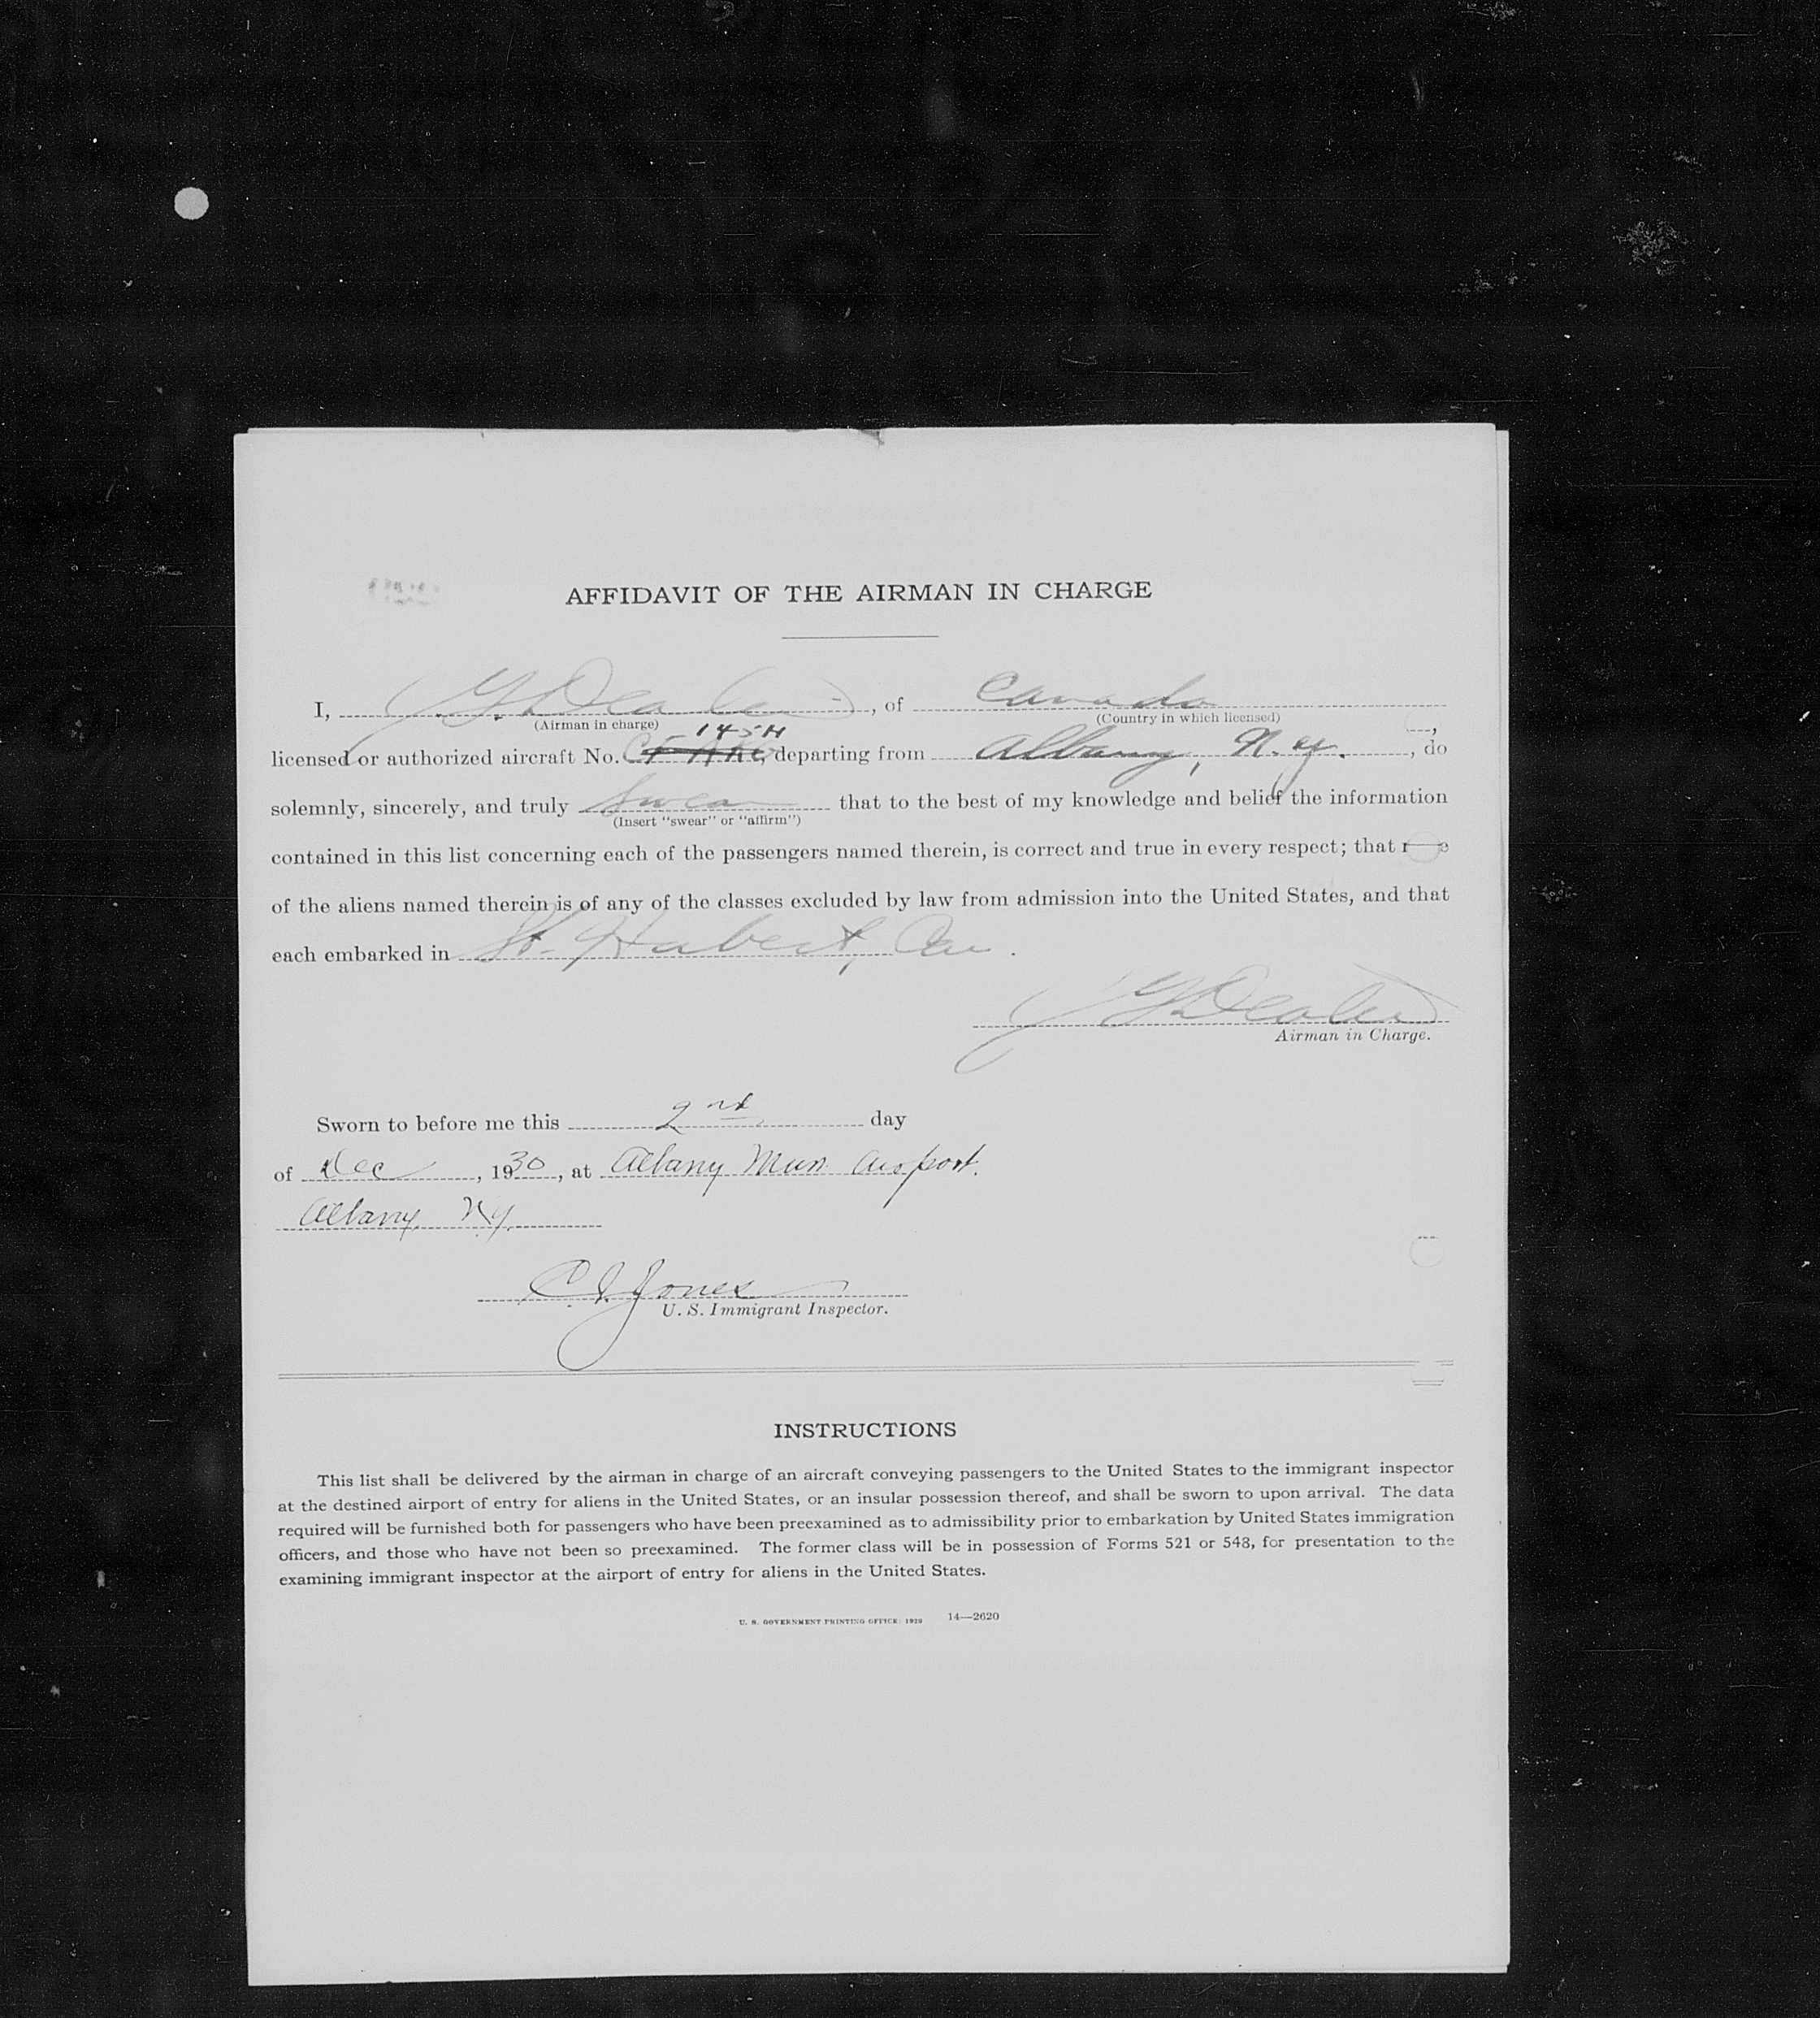 AFFIDAVIT OF THE AIRMAN IN CHARGE
I, , of Canada
(Airman in charge) (Country in which licensed)
145H
licensed or authorized aircraft No. departing from Albany, N.Y. , do
solemnly, sincerely, and truly swear that to the best of my knowledge and belief the information
(Insert "swear" or "affirm")
contained in this list concerning each of the passengers named therein, is correct and true in every respect; that
of the aliens named therein is of any of the classes excluded by law from admission into the United States, and that
each embarked in St. Hubert, Can.
Airman in Charge.
Sworn to before me this 2nd day
of Dec , 1930, at Albany Mun Airport.
Albany NY
C. I. Jones
U. S. Immigrant Inspector.
INSTRUCTIONS
This list shall be delivered by the airman in charge of an aircraft conveying passengers to the United States to the immigrant inspector
at the destined airport of entry for aliens in the United States, or an insular possession thereof, and shall be sworn to upon arrival. The data
required will be furnished both for passengers who have been preexamined as to admissibility prior to embarkation by United States immigration
officers, and those who have not been so preexamined. The former class will be in possession of Forms 521 or 548, for presentation to the
examining immigrant inspector at the airport of entry for aliens in the United States.
U. S. GOVERNMENT PRINTING OFFICE: 1929 14—2620